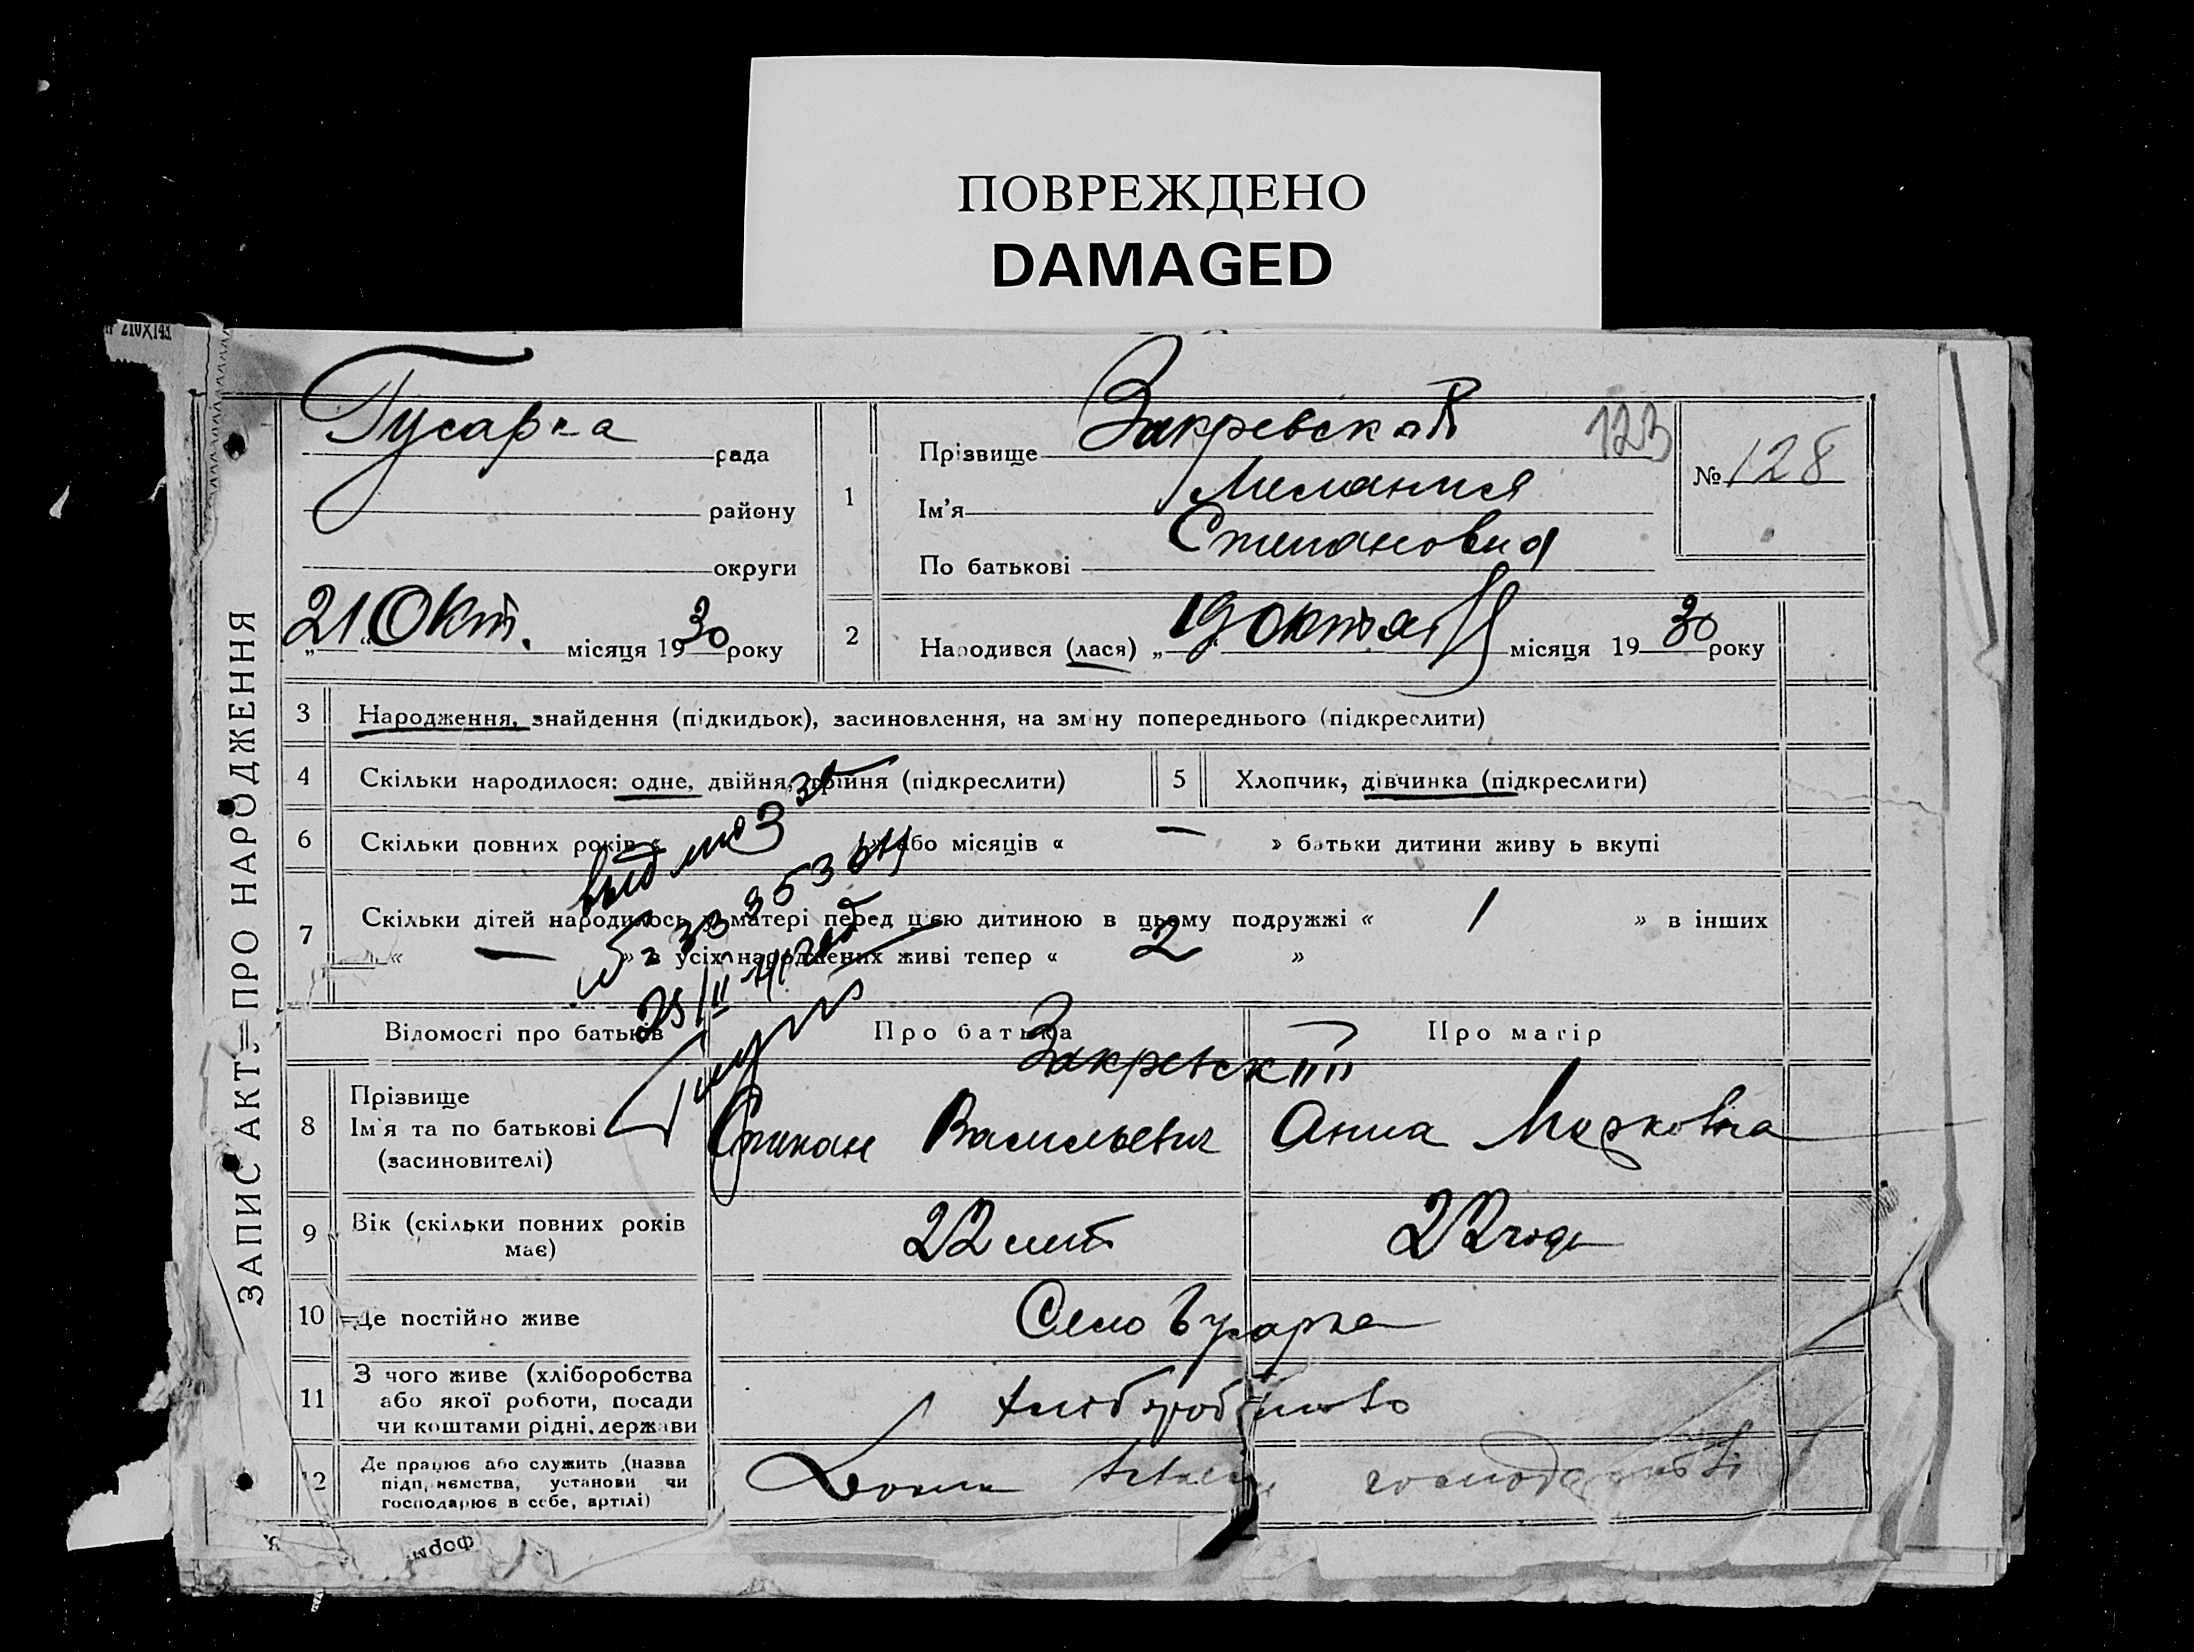 ПОВРЕЖДЕНО
DAMAGED
210X143
ЗАПИС АКТ. ПРО НАРОДЖЕННЯ
Гусарка
рада
району
округи
21 Окт. місяця 1930 року
1
Прізвище Закревская
123
Ім'я Мелания
По батькові Степановна
№ 128
2
Народився (лася) „19" октября місяця 1930 року
3 Народження, знайдення (підкидьок), засиновлення, на зміну попереднього (підкреслити)
4 Скільки народилося: одне, двійня, трійня (підкреслити)
5 Хлопчик, дівчинка (підкреслити)
6 Скільки повних років « » або місяців « — » батьки дитини живуть вкупі
7 Скільки дітей народилось у матері перед цією дитиною в цьому подружжі « 1 » в інших
« — » з усіх народжених живі тепер « 2 »
25/II
Відомості про батьків
Про батька
Про матір
Закревский
8 Прізвище
Ім'я та по батькові
(засиновителі)
Степан Васильевич
Анна Марковна
9 Вік (скільки повних років має)
22 лет
22 года
10 Де постійно живе
Село Гусарка
11 З чого живе (хліборобства
або якої роботи, посади
чи коштами рідні, держави
хліборобство
12 Де працює або служить (назва
підприємства, установи чи
господарює в себе, артілі)
господарстві
Форм.